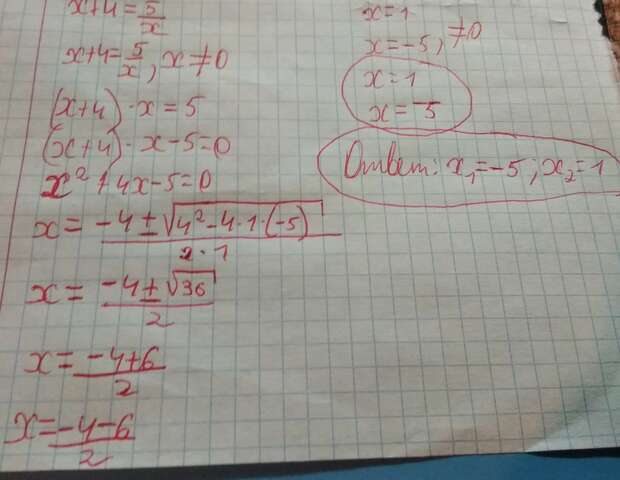 x+4=5/x
x+4=5/x, x≠0
(x+4)·x=5
(x+4)·x-5=0
x²+4x-5=0
x=(-4±√(4²-4·1·(-5)))/(2·1)
x=(-4±√36)/2
x=(-4+6)/2
x=(-4-6)/2
x=1
x=-5, ≠0
x=1
x=-5
Ответ: x₁=-5; x₂=1